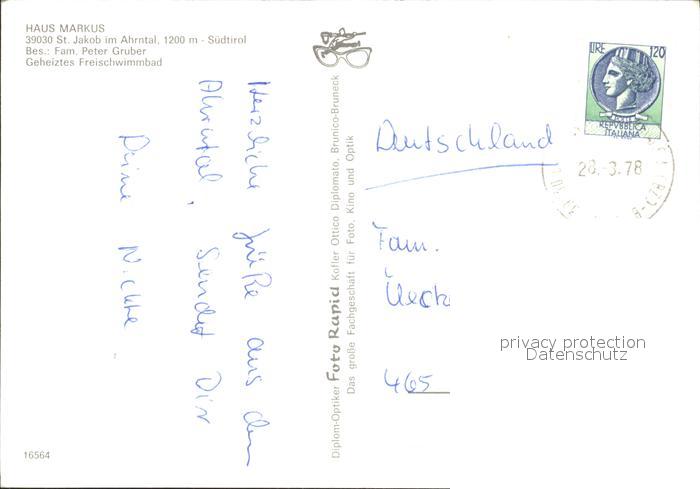 HAUS MARKUS
39030 St. Jakob im Ahrntal, 1200 m - Südtirol
Bes.: Fam. Peter Gruber
Geheiztes Freischwimmbad
Herzliche Grüße aus dem
Ahrntal, sendet Dir
Deine Nichte
Diplom-Optiker Foto Rapid Kofler Ottico Diplomato, Brunico-Bruneck
Das große Fachgeschäft für Foto, Kino und Optik
LIRE 120
REPVBBLICA
ITALIANA
28.-3.78
Deutschland
Fam.
465
privacy protection
Datenschutz
16564